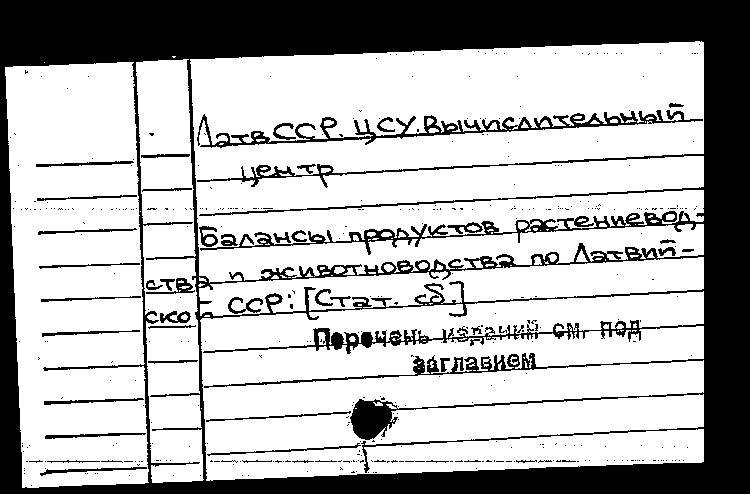 Латв ССР. ЦСУ. Вычислительный
центр
Балансы продуктов растениевод-
ства и животноводства по Латвий-
ской ССР: [Стат. сб.]
Перечень изданий см. под
заглавием